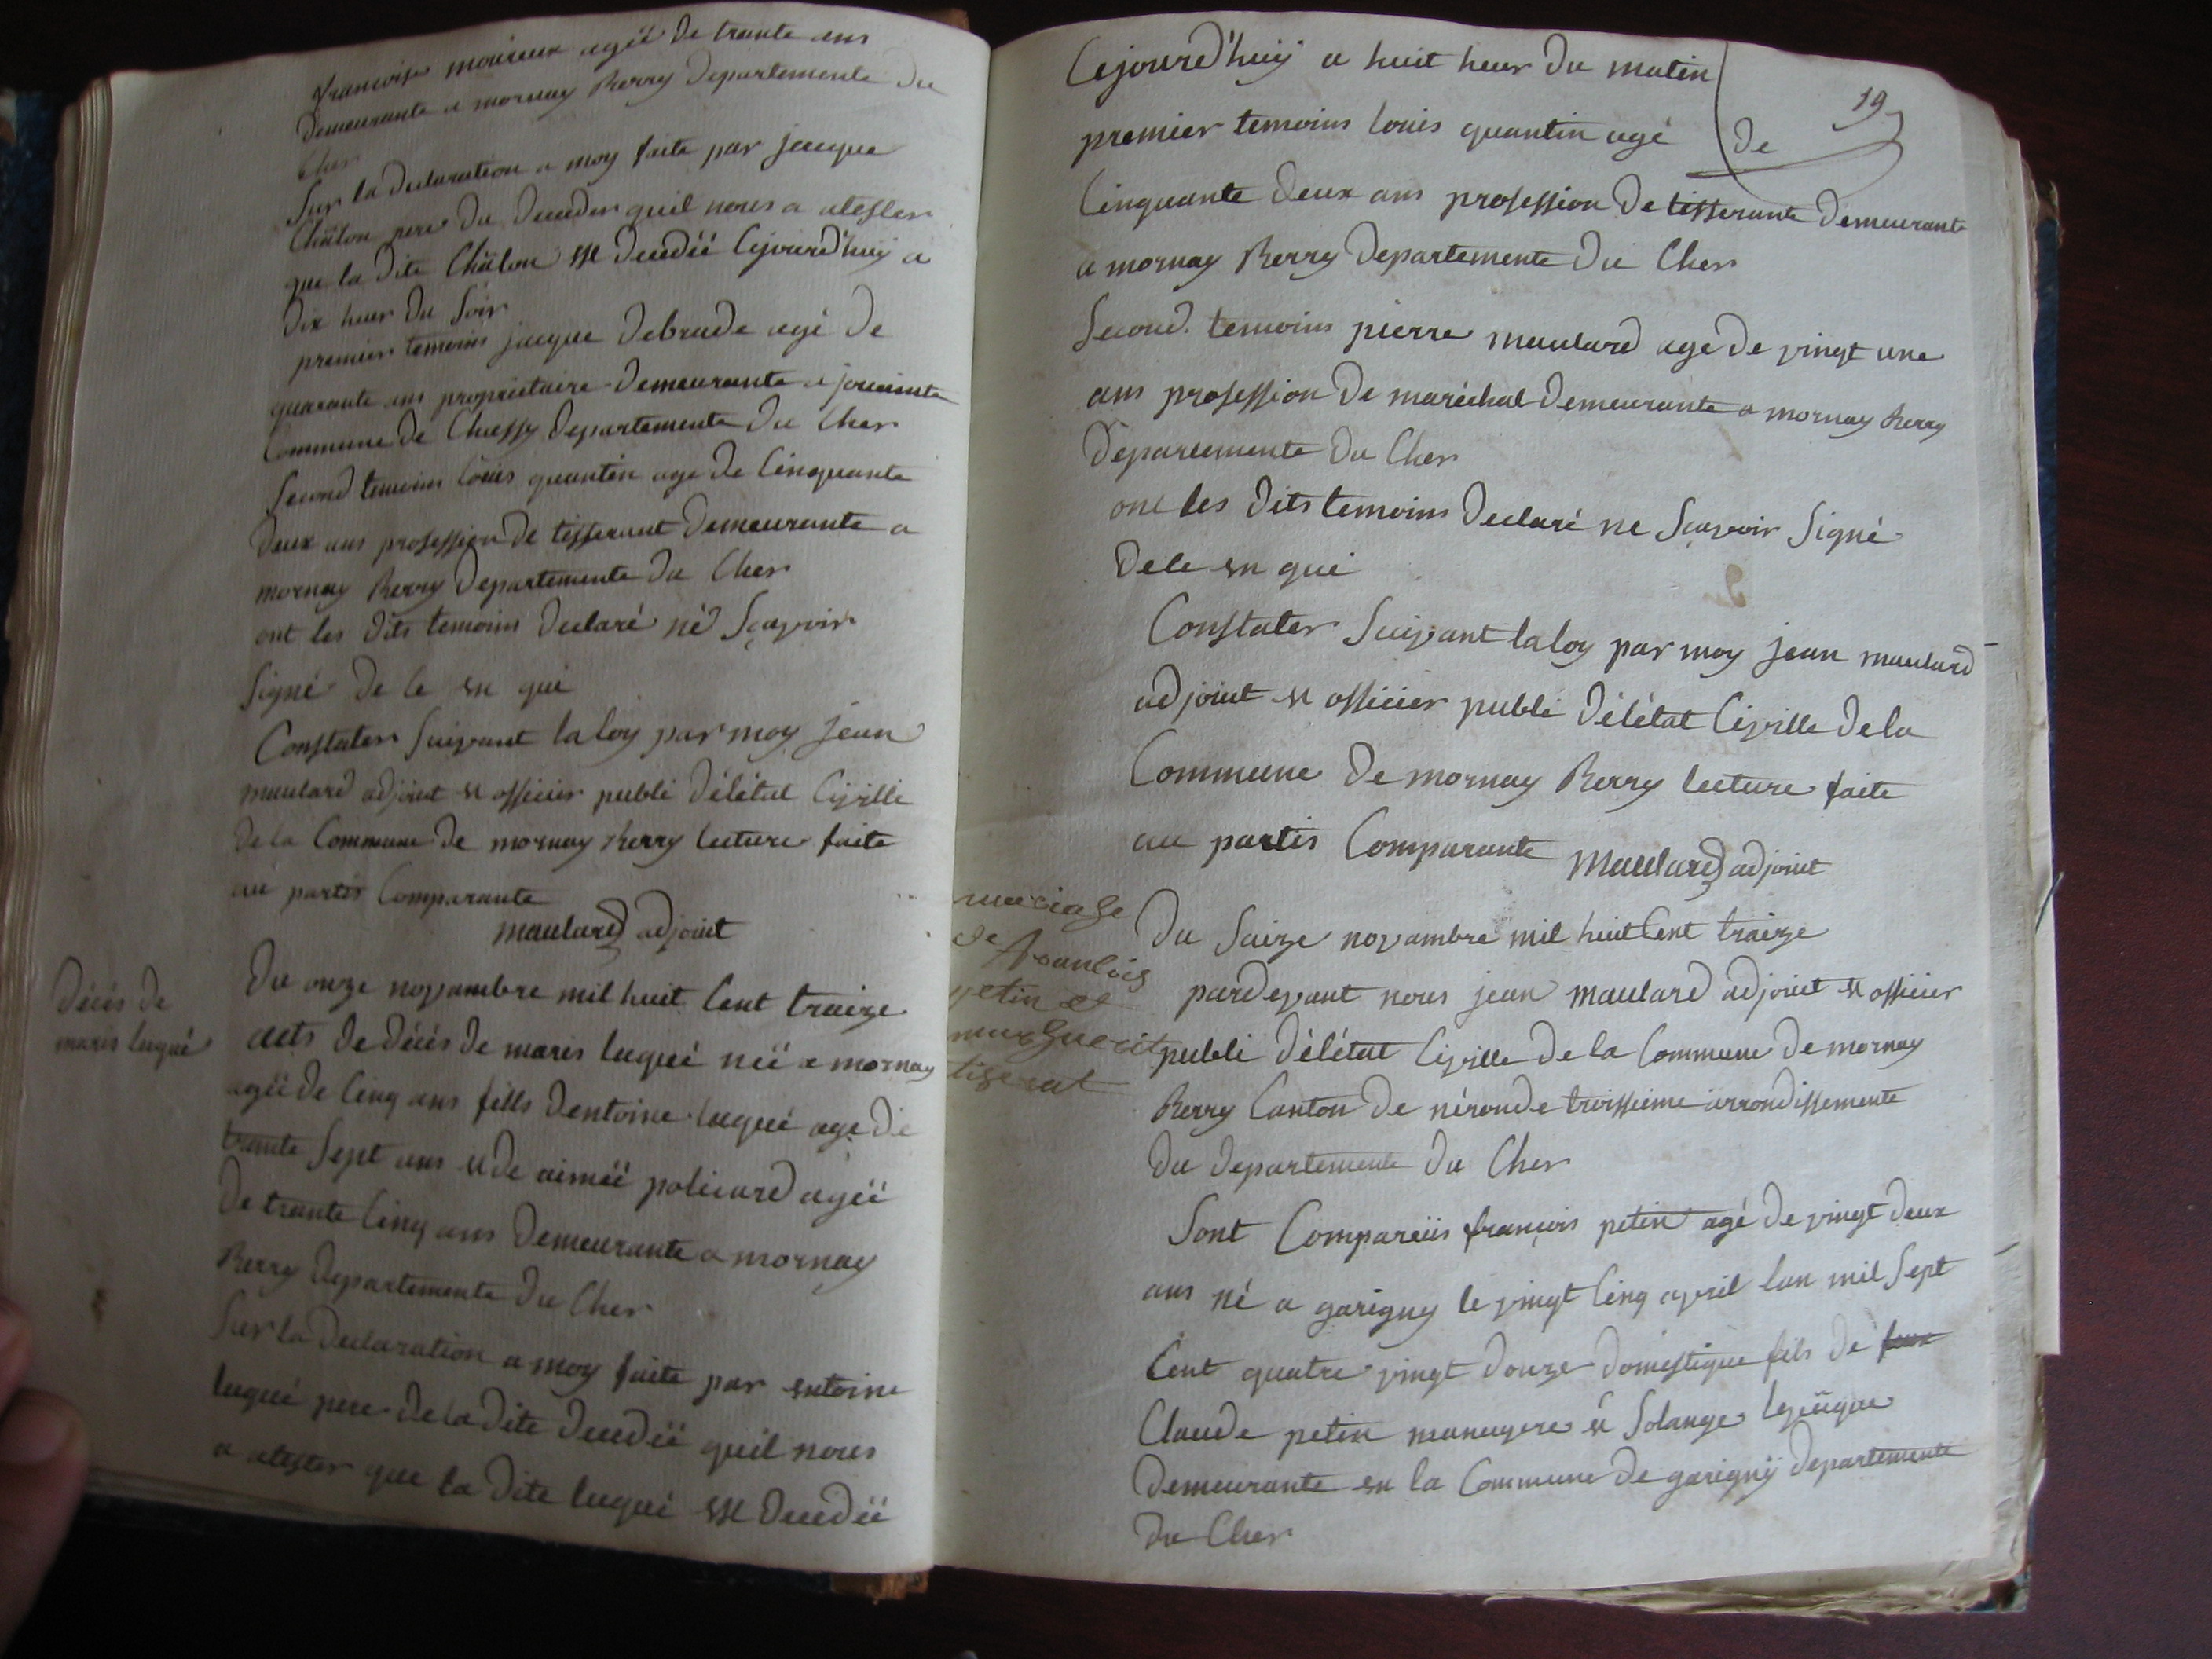 francoise moureux agéé de trante ans
Demeurante a mornay Berry Departemente du
Cher
Sur la declaration a moy faite par jacque
Châlon pere du deceder quil nous a atester
que la dite Châlon est decedéé Cejourd'huy a
dix heur du Soir
premier temoins jacque Debrade agé de
quarante ans propriétaire Demeurante a
Commune de Chassy Departemente du Cher
Second temoins Louis quantin age de Cinquante
deux ans profession de tisserant Demeurante a
mornay Berry Departemente du Cher
ont les dits temoins declaré né Sçavoir
Signé de ce en qui
Constater Suivant la loy par moy jean
maulard adjoint et officier publi délétat Civille
de la Commune de mornay Berry lecture faite
au partis Comparante
maulard adjoint
Décés de
maris luqué
Du onze novambre mil huit Cent traize
acts de décés de maris luqué néé a mornay
agéé de Cinq ans fills dentoine luqué age de
trante Sept ans et de aiméé policard agéé
de trante Cinq ans Demeurante a mornay
Berry Departemente du Cher
Sur la declaration a moy faite par entoine
luqué pere de la dite decedéé quil nous
a atester que la dite luqué est decedéé
19
Cejourd'huy a huit heur du matin
premier temoins louis quantin agé de
Cinquante deux ans profession de tisserante demeurante
a mornay Berry Departemente du Cher
Second temoins pierre maulard age de vingt une
ans profession de maréchal demeurante a mornay Berry
Departemente du Cher
ont les dits temoins declaré ne Sçavoir Signé
de ce en qui
Constater Suivant la loy par moy jean maulard
adjoint et officier publi délétat Civille de la
Commune de mornay Berry lecture faite
au partis Comparante maulard adjoint
mariage
de francois
petin et
marguerite
tiserat
Du Saize novambre mil huit Cent traize
pardevant nous jean maulard adjoint et officier
publi délétat Civille de la Commune de mornay
Berry Canton de néronde troissieme arrondissemente
du departemente du Cher
Sont Comparéüs françois petin agé de vingt deux
ans né a garigny le vingt Cinq avril lan mil Sept
Cent quatre vingt douze domestique fils de feux
Claude petin manuyere et Solange
demeurante en la Commune de garignÿ departemente
du Cher